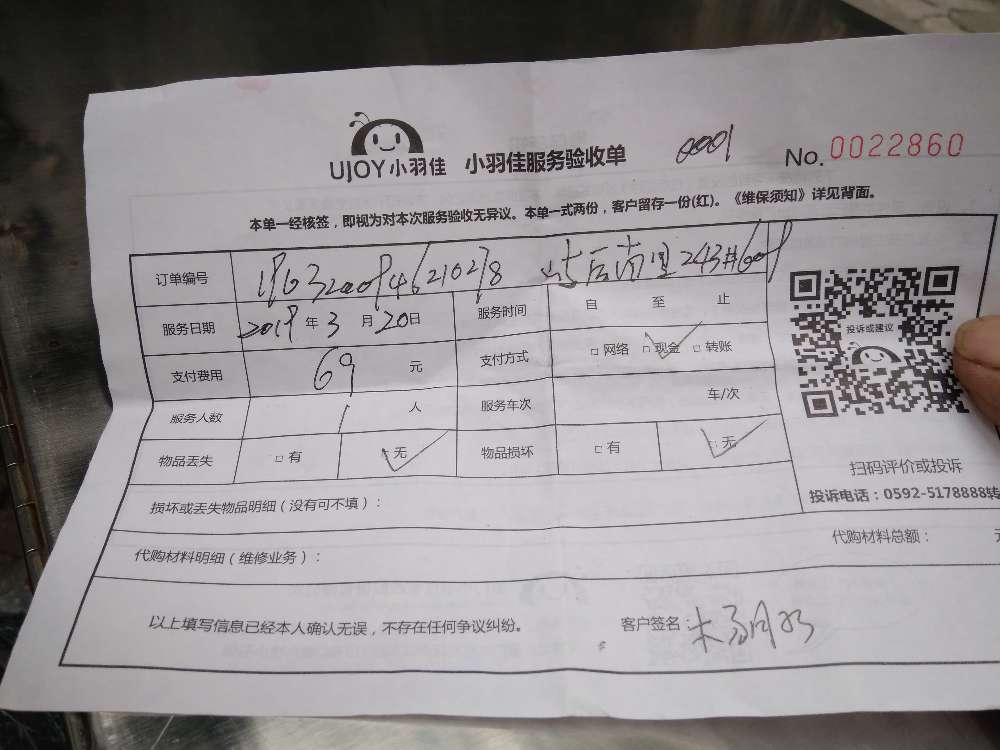 UJOY小羽佳 小羽佳服务验收单 0001 No.0022860
本单一经核签，即视为对本次服务验收无异议。本单一式两份，客户留存一份(红)。《维保须知》详见背面。
订单编号
服务日期 2019年3月20日 服务时间 自 至 止
投诉或建议
支付费用 69元 支付方式 □网络 □现金 □转账
服务人数 1人 服务车次 车/次
物品丢失 □有 无 物品损坏 □有 无
扫码评价或投诉
投诉电话：0592-5178888转
损坏或丢失物品明细（没有可不填）：
代购材料明细（维修业务）： 代购材料总额：
以上填写信息已经本人确认无误，不存在任何争议纠纷。 客户签名：